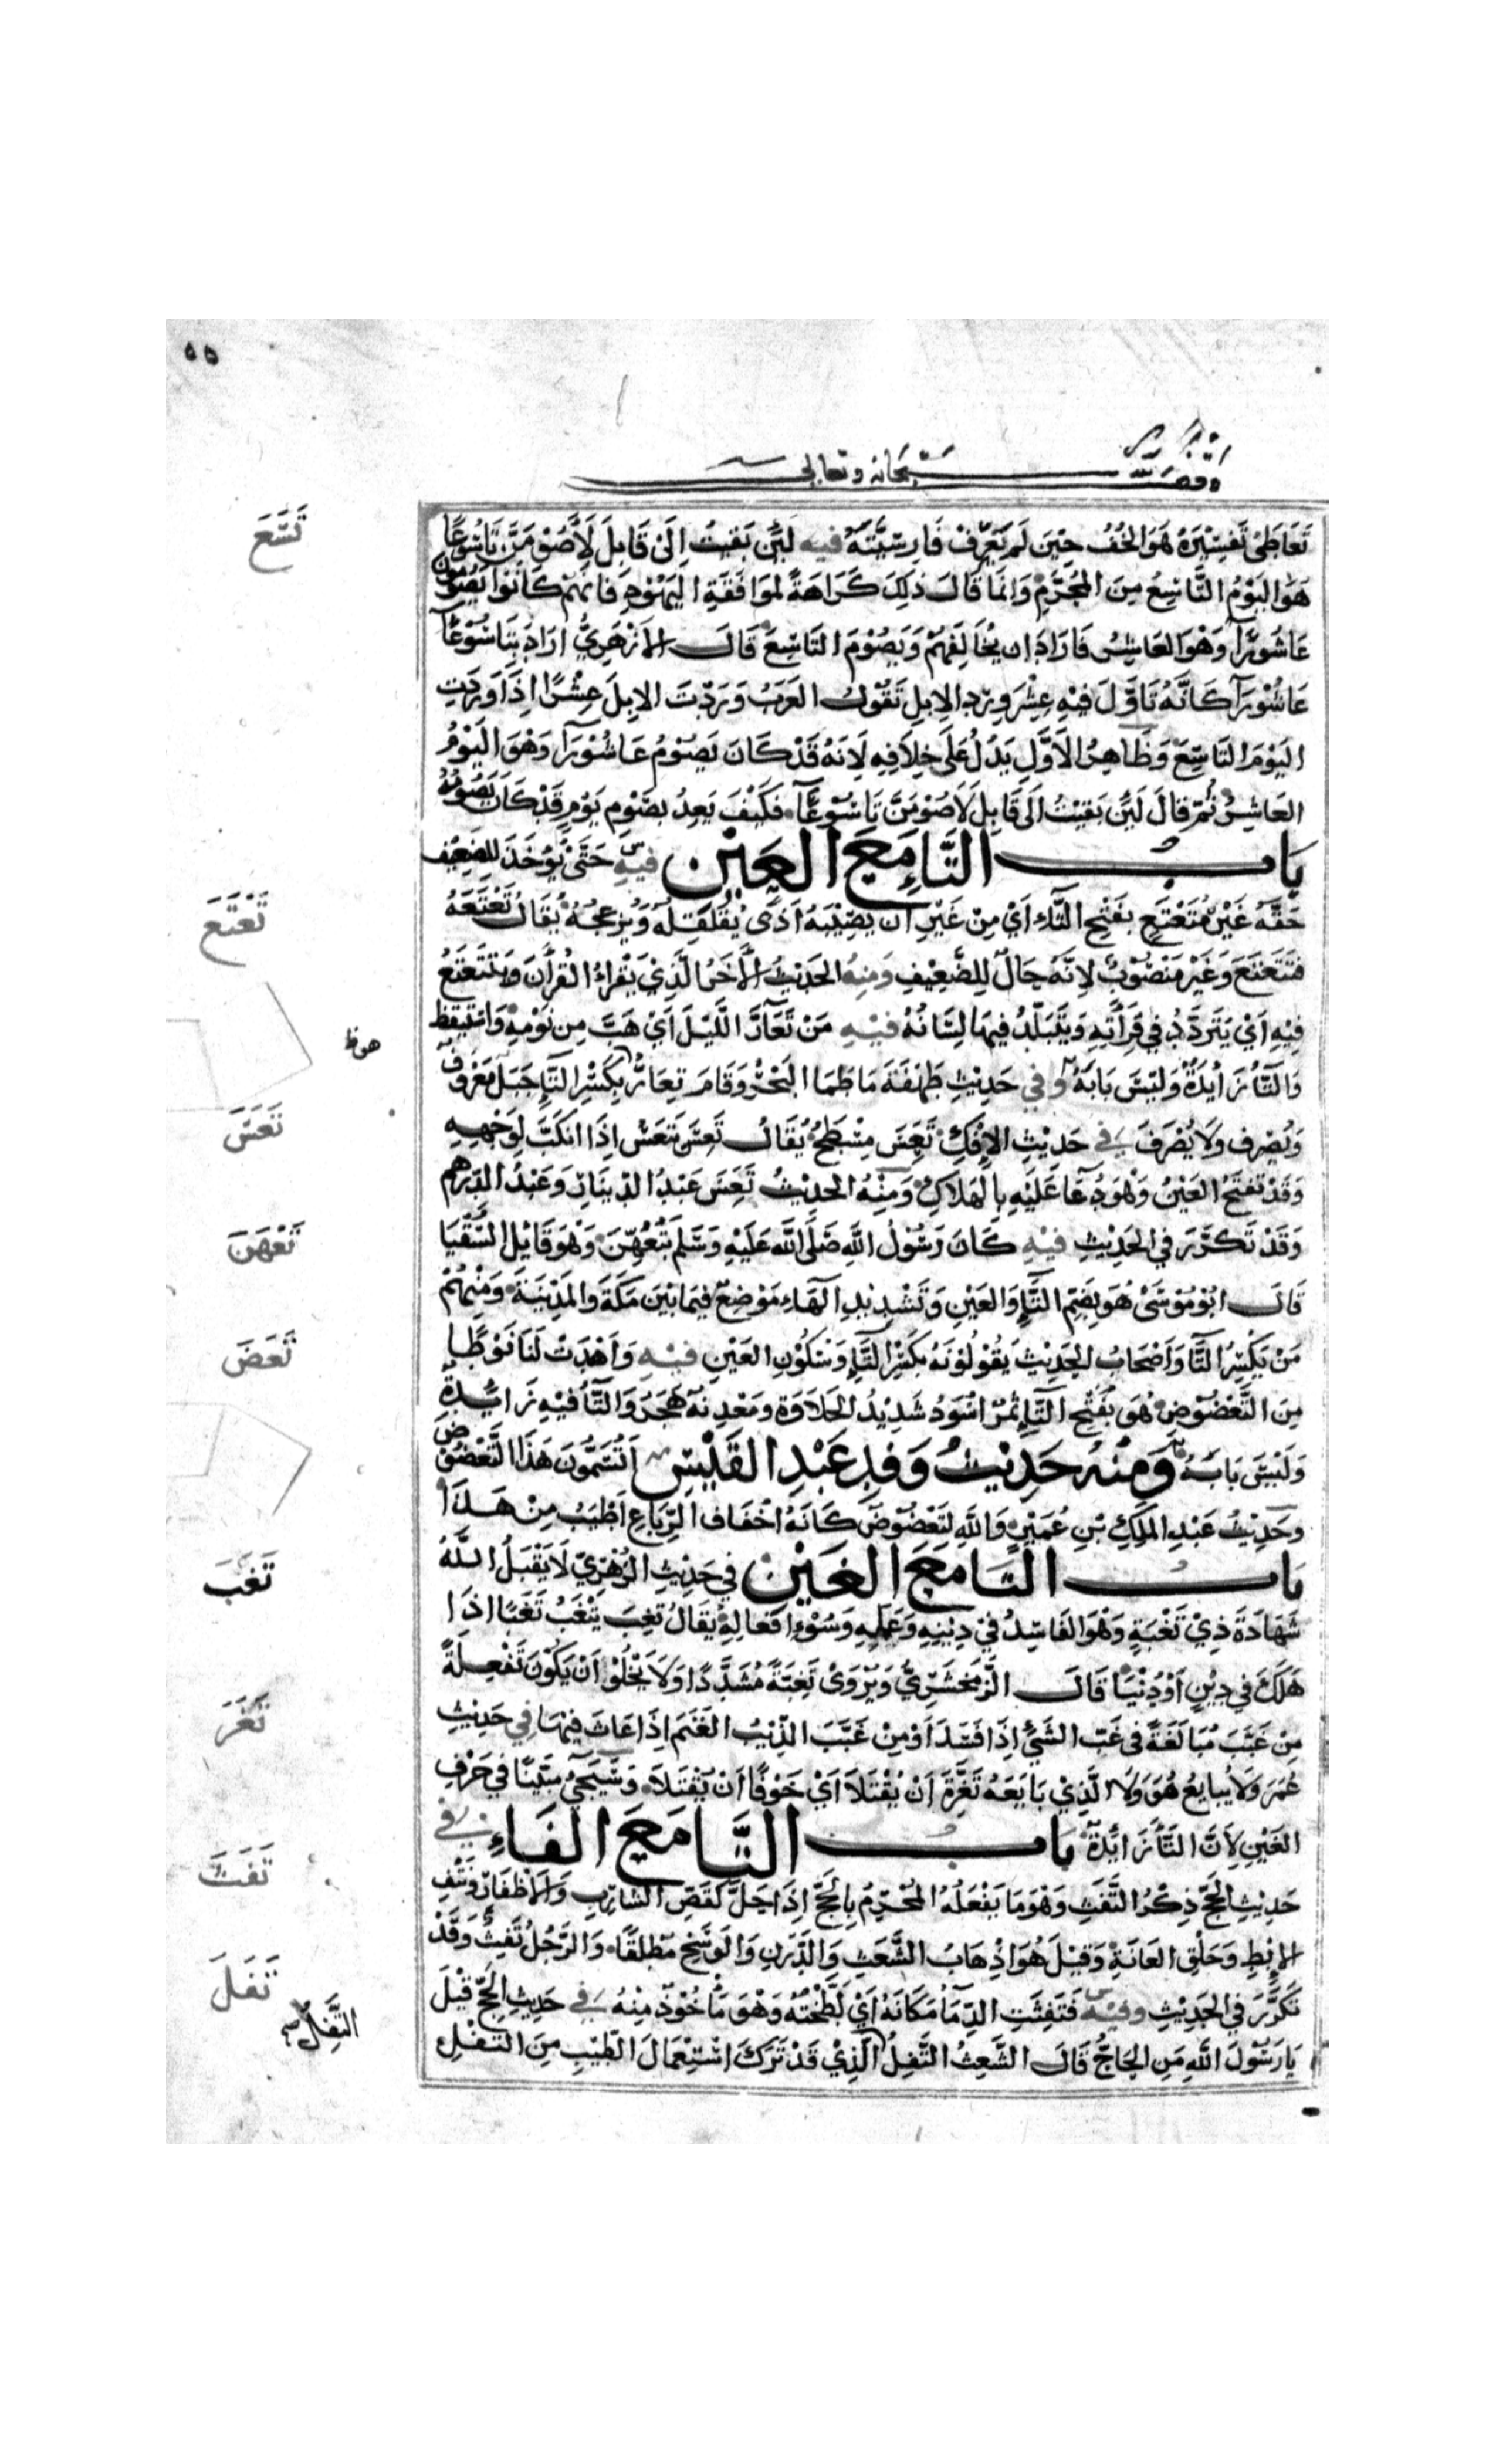 ٥٥
سبحانه وتعالى
تَعَاطَى تَفْسِيْرَهُ هُوَ الخُفُّ حِيْنَ لَمْ يَعْرِفْ فَارِسِيَّتَهُ فيه لَئِنْ بَقِيتُ اِلَى قَابِلَ لَأَصُوْمَنَّ تَاسُوْعًا
تَسَعَ
هُوَ اليَوْمُ التَّاسِعُ مِنَ المُحَرَّمِ وَاِنَّمَا قَالَ ذلِكَ كَرَاهَةً لِمُوَافَقَةِ اليَهُوْدِ فَانَّهُمْ كَانُوْا يَصُوْمُوْنَ
عَاشُوْرَآ وَهُوَ العَاشِرُ فَارَادَ ان يُخَالِفَهُمْ وَيَصُوْمَ التَاسِعَ قَالَ الأَزْهَرِيُّ ارَادَ بِتَاسُوْعَآ
عَاشُوْرَآ كَانَّهُ تَاَوَّلَ فِيْهِ عِشْرَ وِرْدِ الإِبِلِ تَقُوْلُ العَرَبُ وَرَدَتِ الإبِلُ عِشْرًا اِذَا وَرَدَتِ
اليَوْمَ التَاسِعَ وَظَاهِرُ الأَوَّلِ يَدُلُّ عَلَى خِلَافِهِ لِاَنَهُ قَدْ كَانَ يَصُوْمُ عَاشُوْرَآ وَهُوَ اليَوْمُ
العَاشِرُ ثُمَّ قَالَ لَئِنْ بَقِيْتُ اِلَى قَابِلَ لَاَصُوْمَنَّ تَاسُوْعَآ فَكَيْفَ يَعِدُ بِصَوْمِ يَوْمٍ قَدْ كَانَ يَصُوْمُهُ
بَاب التَّاءِ مَعَ العَيْنِ فيه حَتَّى يُؤْخَذَ لِلضَعِيْفِ
حَقُّهُ غَيْرَ مُتَعْتَعٍ بِفَتْحِ التَّاءِ اَيْ مِنْ غَيْرِ اَنْ يُصِيْبَهُ اَذًى يُقَلْقِلُهُ وَيُزْعِجُهُ يُقَالُ تَعْتَعَهُ
تَعْتَعَ
فَتَتَعْتَعَ وَغَيْرَ مَنْصُوْبٌ لِاَنَّهُ حَالٌ لِلضَّعِيْفِ وَمِنْهُ الحَدِيْثُ الأَخَرُ الَّذِيْ يَقْرَأُ القُرْاٰنَ وَيَتَتَعْتَعُ
فِيْهِ اَيْ يَتَرَدَّدُ فِي قِرَأَتِهِ وَيَتَبَلَّدُ فِيْهَا لِسَانُهُ فيه مَنْ تَعَارَّ مِنَ اللَّيْلِ اَيْ هَبَّ مِنْ نَوْمِهِ وَاسْتَيْقَظَ
وَالتَّأُ زَايِدَةٌ وَلَيْسَ بَابَهُ وفي حَدِيْثِ طَهْفَةَ مَا طَمَا البَحْرُ وَقَامَ تِعَارُ بِكَسْرِ التَّاءِ جَبَلٌ مَعْرُوْفٌ
وَيُصْرَف وَلَا يُصْرَفُ في حَدِيْثِ الإِفْكِ تَعِسَ مِسْطَحٌ يُقَالُ تَعِسَ يَتْعَسُ اِذَا انْكَبَّ لِوَجْهِهِ
تَعَسَ
وَقَدْ تُفْتَحُ العَيْنُ وَهُوَ دُعَا عَلَيْهِ بِالهَلَاكِ وَمِنْهُ الحَدِيْثُ تَعِسَ عَبْدُ الدِّيْنَارِ وَعَبْدُ الدِّرْهَمِ
وَقَدْ تَكَرَّرَ فِي الحَدِيْثِ فيه كَانَ رَسُوْلُ اللهِ صَلَى الله عَلَيْهِ وَسَلَّمَ بِتُعُهِّنَ وَهُوَ قَائِلُ السُّقْيَا
تَعْهَنَ
قَالَ ابُوْ مُوْسَى هُوَ بِضَمِّ التَّاءِ وَالعَيْنِ وَتَشْدِيْدِ الهَاءِ مَوْضِعٌ فِيْمَا بَيْنَ مَكَّةَ وَالمَدِيْنَةِ وَمِنْهُمْ
مَنْ يَكْسِرُ التَّا وَاَصْحَابُ الحَدِيْثِ يَقُوْلُوْنَهُ بِكَسْرِ التَّاءِ وَسُكُوْنِ العَيْنِ فيه وَاَهْدَتْ لَنَا نَوْطًا
تَعَضَ
مِنَ التَّعْضُوْضِ هُوَ بِفَتْحِ التَّاءِ تَمْرٌ اَسْوَدُ شَدِيْدُ الحَلَاوَةِ وَمَعْدِنُهُ هَجَرُ وَالتَّأُ فِيْهِ زَايِدَةٌ
وَلَيْسَ بَابَهُ وَمِنْهُ حَدِيْثُ وَفْدِ عَبْدِ القَيْسِ اَتُسَمُّوْنَ هَذَا التَّعْضُوْضَ
وحَدِيْثُ عَبْدِ المَلِكِ بْنِ عُمَيْرٍ وَاللهِ لَتَعْضُوْضٌ كَانَهُ اَخْفَافُ الرِّبَاعِ اَطْيَبُ مِنْ هَذَا
بَاب التَا مَعَ الغَيْنِ في حَدِيْثِ الزُّهْرِيِّ لَا يَقْبَلُ اللهُ
تَغَبَ
شَهَادَةَ ذِيْ تَغْبَةٍ وَهُوَ الفَاسِدُ فِيْ دِيْنِهِ وَعَمَلِهِ وَسُوْءِ اَفْعَالِهِ يُقَالُ تَغِبَ يَتْغَبُ تَغَبًا اِذَا
هَلَكَ فِي دِيْنٍ اَوْ دُنْيَا قَالَ الزَّمَخْشَرِيُّ وَيُرْوَى تَغِبَّةً مُشَدَّدًا وَلَا يَخْلُوْ اَنْ يَكُوْنَ تَفْعِلَةً
مِنْ غَبَّبَ مُبَالَغَةً فِي غَبَّ الشَيْئُ اِذَا فَسَدَ اَوْ مِنْ غَبَّبَ الذِّئْبُ الغَنَمَ اِذَا عَاثَ فِيْهَا في حَدِيْثِ
تَغَرَ
عُمَرَ وَلَا يُبَايِعُ هُوَ وَلَا الَّذِيْ بَايَعَهُ تَغِرَّةَ اَنْ يُقْتَلَا اَيْ خَوْفًا اَنْ يُقْتَلَا وَسَيَجِيْ مُبَيَّنًا فِي حَرْفِ
الغَيْنِ لِاَنَّ التَّأَ زَايِدَةٌ بَاب التَّا مَعَ الفَاءِ في
حَدِيْثِ الحَجِّ ذِكْرُ التَّفَثِ وَهُوَ مَا يَفْعَلُهُ المُحْرِمُ بِالحَجِّ اِذَا حَلَّ كَقَصِّ الشَّارِبِ وَالأَظْفَارِ وَنَتْفِ
تَفَثَ
الإِبْطِ وَحَلْقِ العَانَةِ وَقِيْلَ هُوَ اِذْهَابُ الشَّعَثِ وَالدَّرَنِ وَالوَسَخِ مُطْلَقًا وَالرَّجُلُ تَفِثٌ وَقَدْ
تَكَرَّرَ فِي الحَدِيْثِ وفيه فَتَفَثَتِ الدِّمَأُ مَكَانَهُ اَيْ لَطَّخَتْهُ وَهُوَ مَأْخُوْذٌ مِنْهُ في حَدِيْثِ الحَجِّ قِيْلَ
تَفَلَ
يَا رَسُوْلَ اللهِ مَنِ الحَاجُّ قَالَ الشَّعِثُ التَّفِلُ الَّذِيْ قَدْ تَرَكَ اسْتِعْمَالَ الطِّيْبِ مِنَ التَّفَلِ
التَّفِلُ